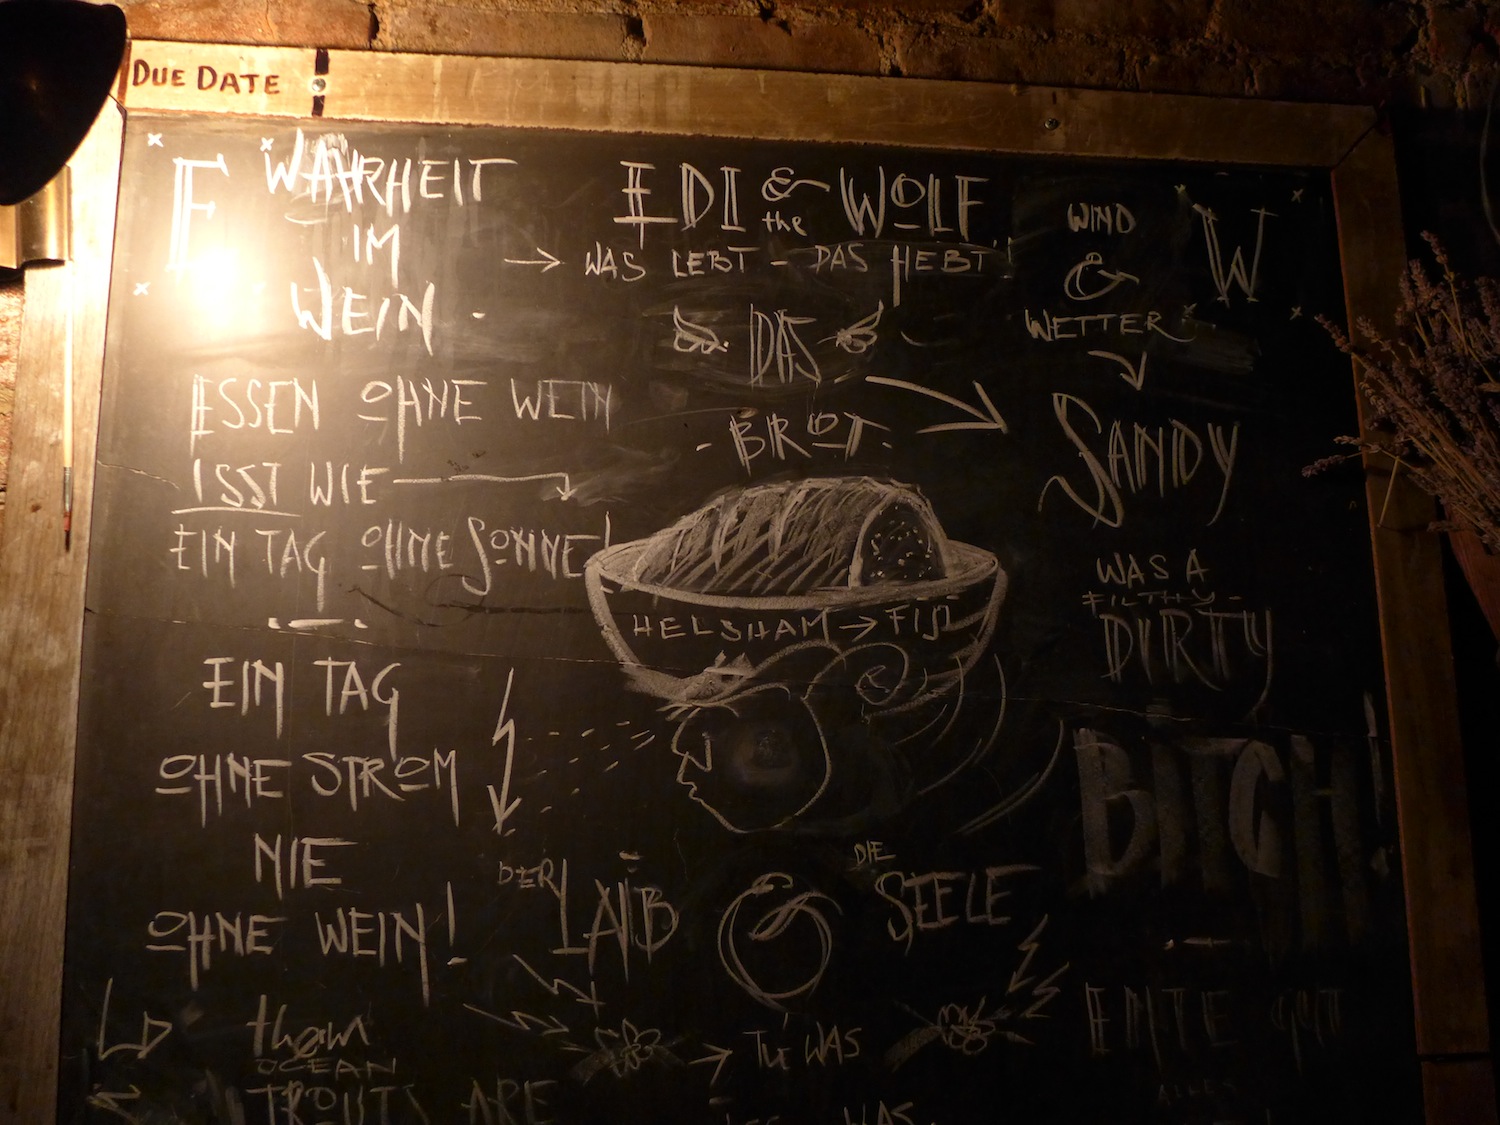 DUE DATE
E
WAHRHEIT
IM
WEIN
ESSEN OHNE WEIN
ISST WIE
EIN TAG OHNE SONNE!
EIN TAG
OHNE STROM
NIE
OHNE WEIN!
OCEAN
TROUTS ARE
EDI & the WOLF
WAS LEBT - DAS HEBT!
DAS
- BROT -
HELSHAM → FIJI
DER LAIB & DIE SEELE
TU WAS
WAS
WIND
&
WETTER
W
SANDY
WAS A
FILTHY-
DIRTY
BITCH!
ENTE GUT
ALLES